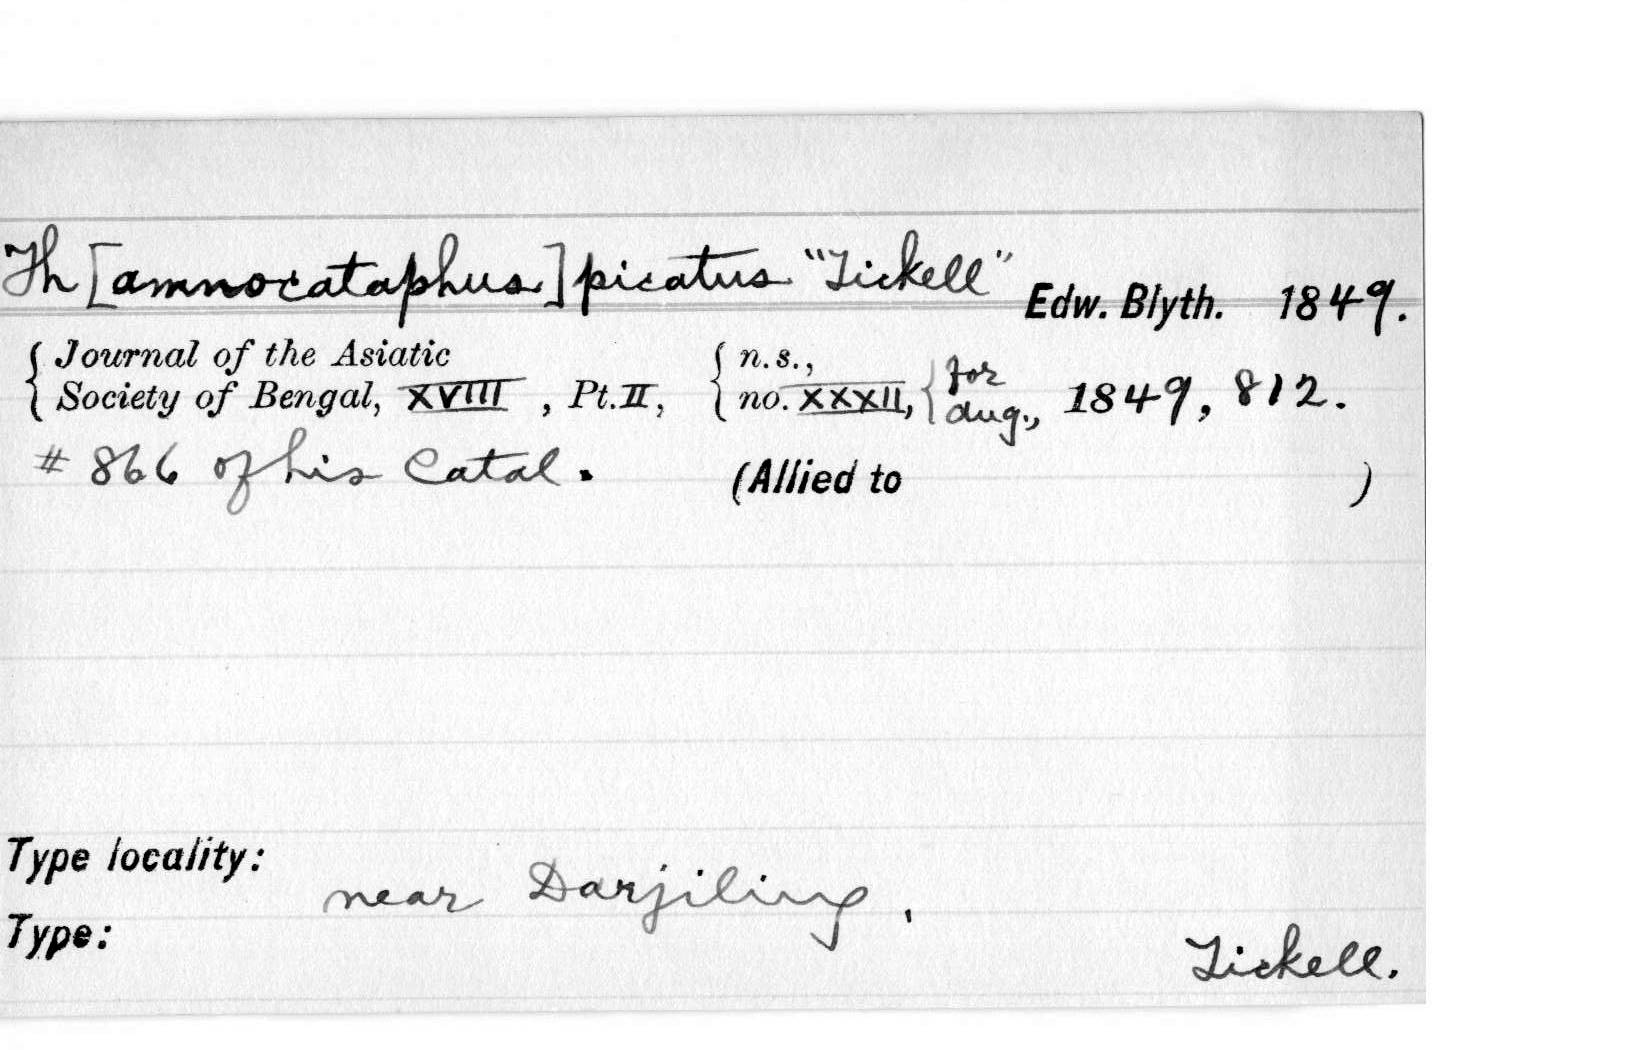 Th [amnocataphus] picatus "Tickell" Edw. Blyth. 1849.
{ Journal of the Asiatic { n.s.,
{ Society of Bengal, XVIII, Pt. II, { no. XXXII, { for Aug., 1849, 812.
# 866 of his Catal. (Allied to )
Type locality:
near Darjiling,
Type:
Tickell.